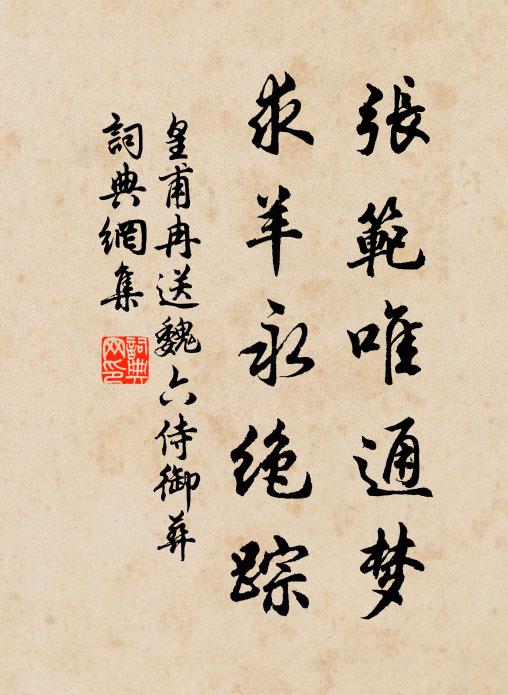 張範唯通梦
求羊永絶踪
皇甫冉送魏六侍御葬
詞典網集
詞典网印